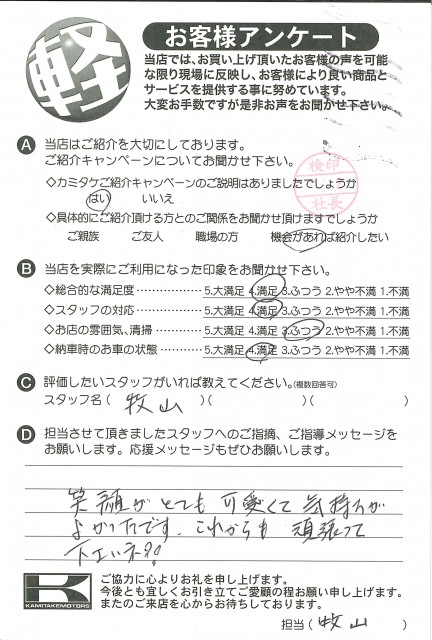 軽
お客様アンケート
当店では、お買い上げ頂いたお客様の声を可能
な限り現場に反映し、お客様により良い商品と
サービスを提供する事に努めています。
大変お手数ですが是非お声をお聞かせ下さい。
A 当店はご紹介を大切にしております。
ご紹介キャンペーンについてお聞かせ下さい。
検印
社長
◇カミタケご紹介キャンペーンのご説明はありましたでしょうか
はい いいえ
◇具体的にご紹介頂ける方とのご関係をお聞かせ頂けますでしょうか
ご親族 ご友人 職場の方 機会があれば紹介したい
B 当店を実際にご利用になった印象をお聞かせ下さい。
◇総合的な満足度 ……………… 5.大満足 4.満足 3.ふつう 2.やや不満 1.不満
◇スタッフの対応 ……………… 5.大満足 4.満足 3.ふつう 2.やや不満 1.不満
◇お店の雰囲気、清掃 ………… 5.大満足 4.満足 3.ふつう 2.やや不満 1.不満
◇納車時のお車の状態 ………… 5.大満足 4.満足 3.ふつう 2.やや不満 1.不満
C 評価したいスタッフがいれば教えてください。(複数回答可)
スタッフ名( 牧山 )( )( )
D 担当させて頂きましたスタッフへのご指摘、ご指導メッセージを
お願いします。応援メッセージもぜひお願いします。
笑顔がとても可愛くて気持ちが
よかったです。これからも頑張って
下さいネ!!
K
KAMITAKEMOTORS
ご協力に心よりお礼を申し上げます。
今後とも宜しくお引き立てご愛顧の程お願い申し上げます。
またのご来店を心からお待ちしております。
担当( 牧山 )